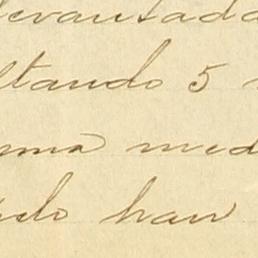 levantada
ltando 5
ma med
do han